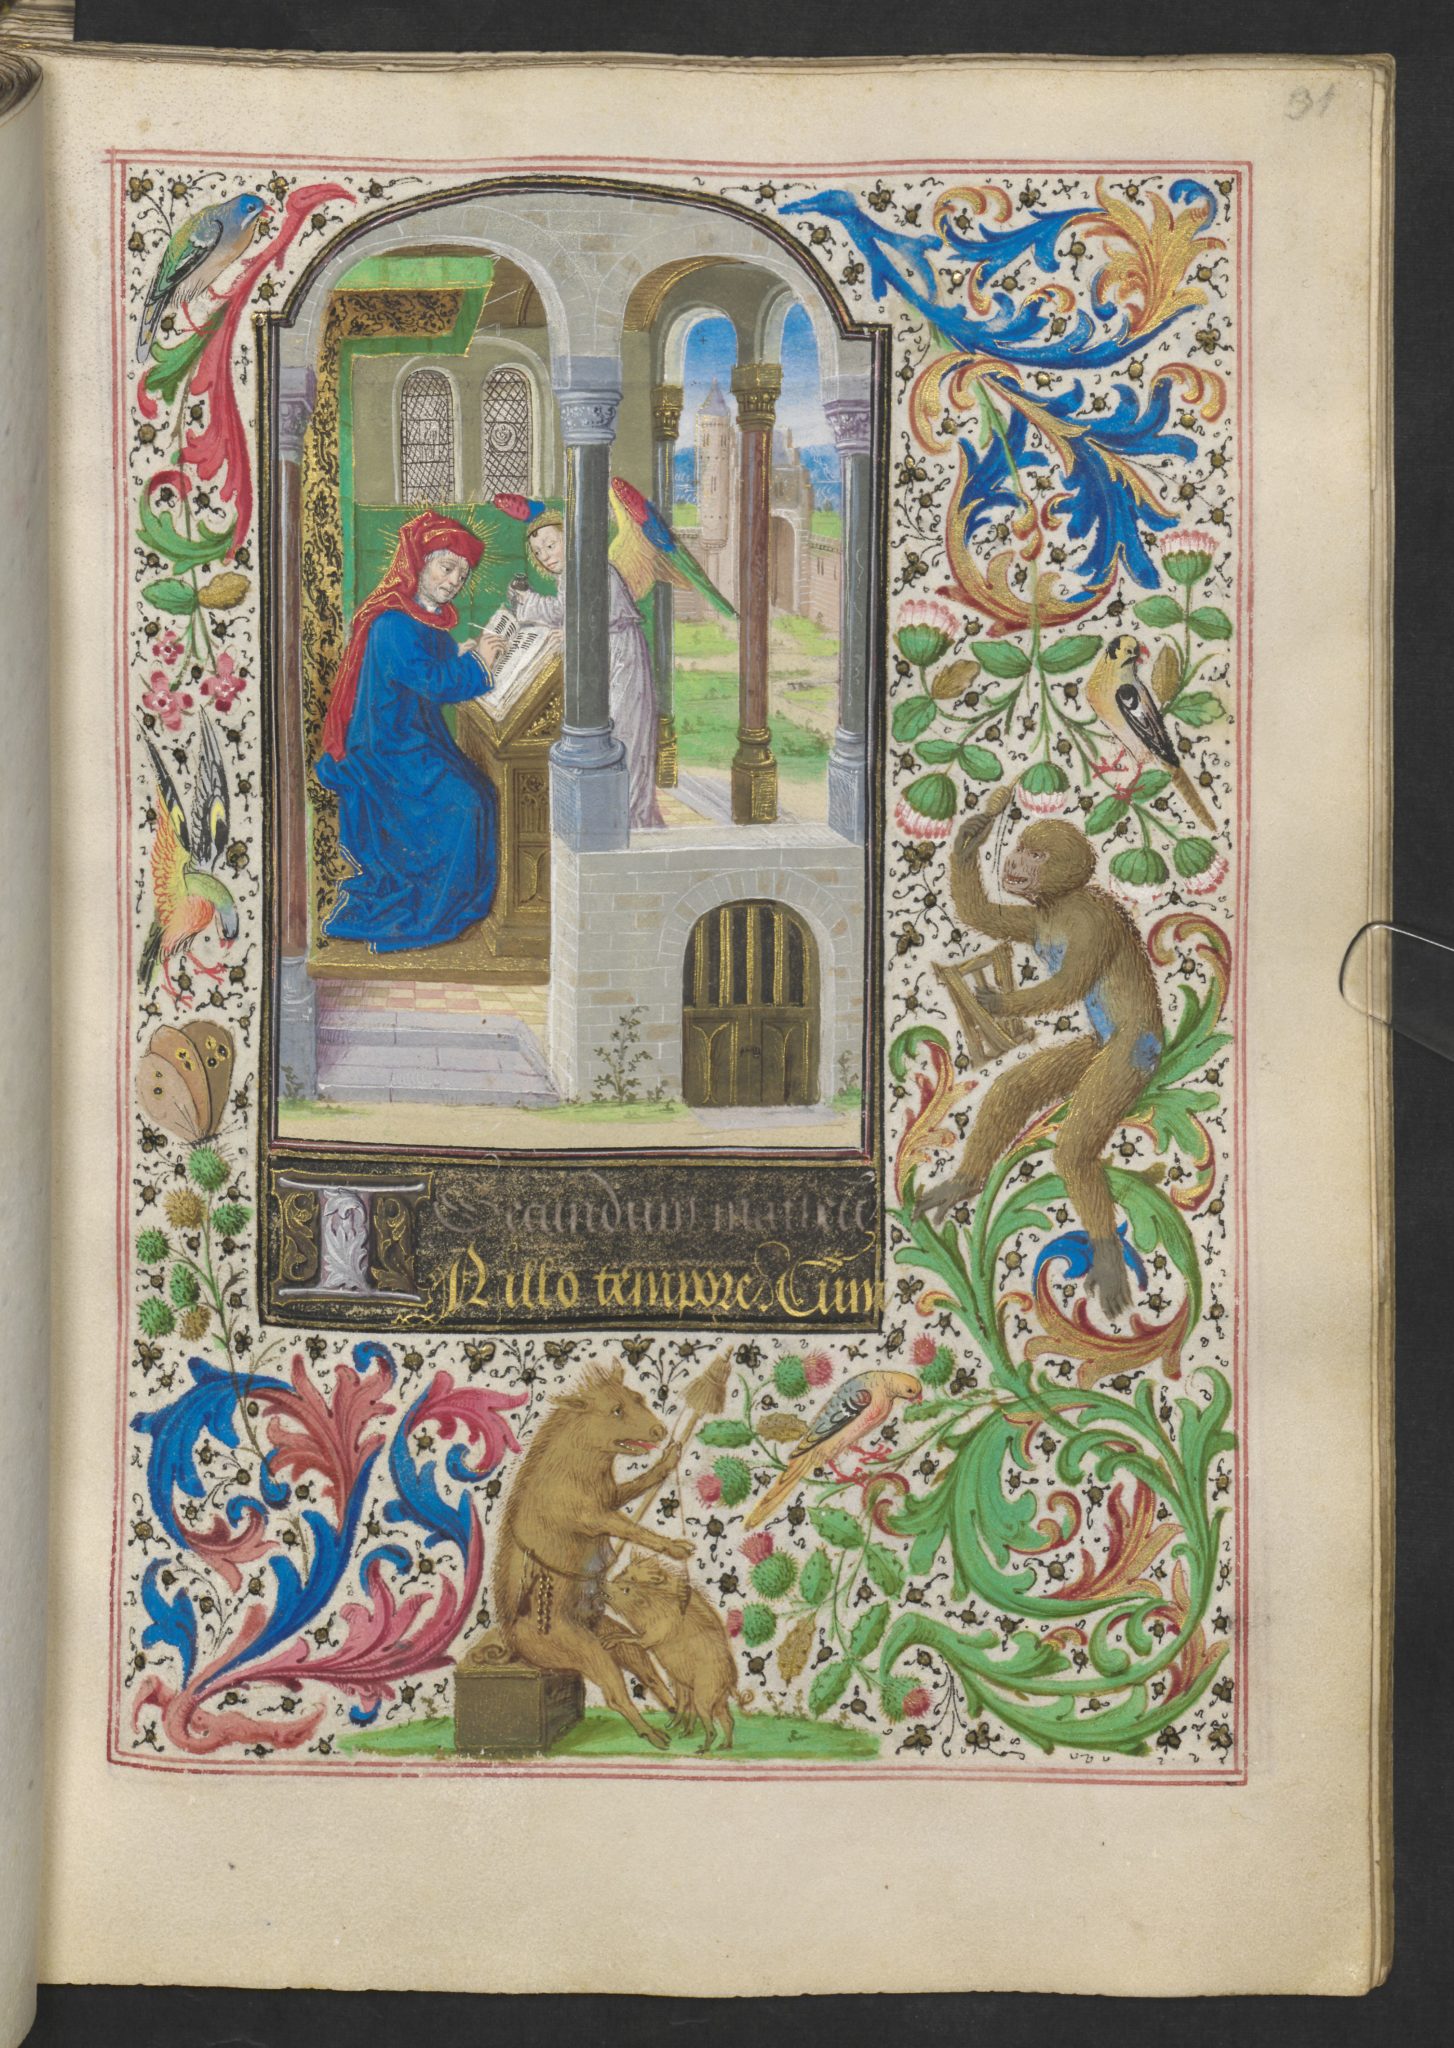 31
Secundum matheu
IN illo tempore. Cum